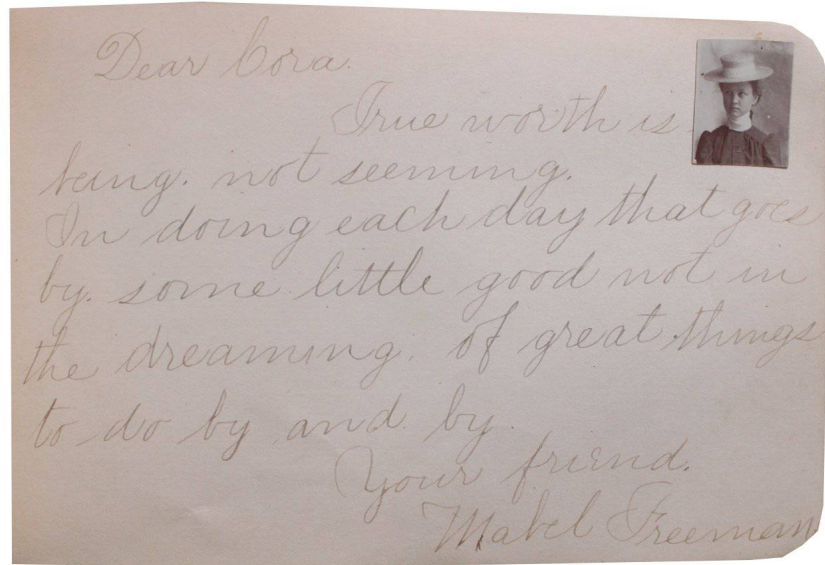 Dear Cora.
True worth is
being. not seeming.
In doing each day that goes
by. some little good not in
the dreaming. of great things
to do by and by.
Your friend.
Mabel Freeman.